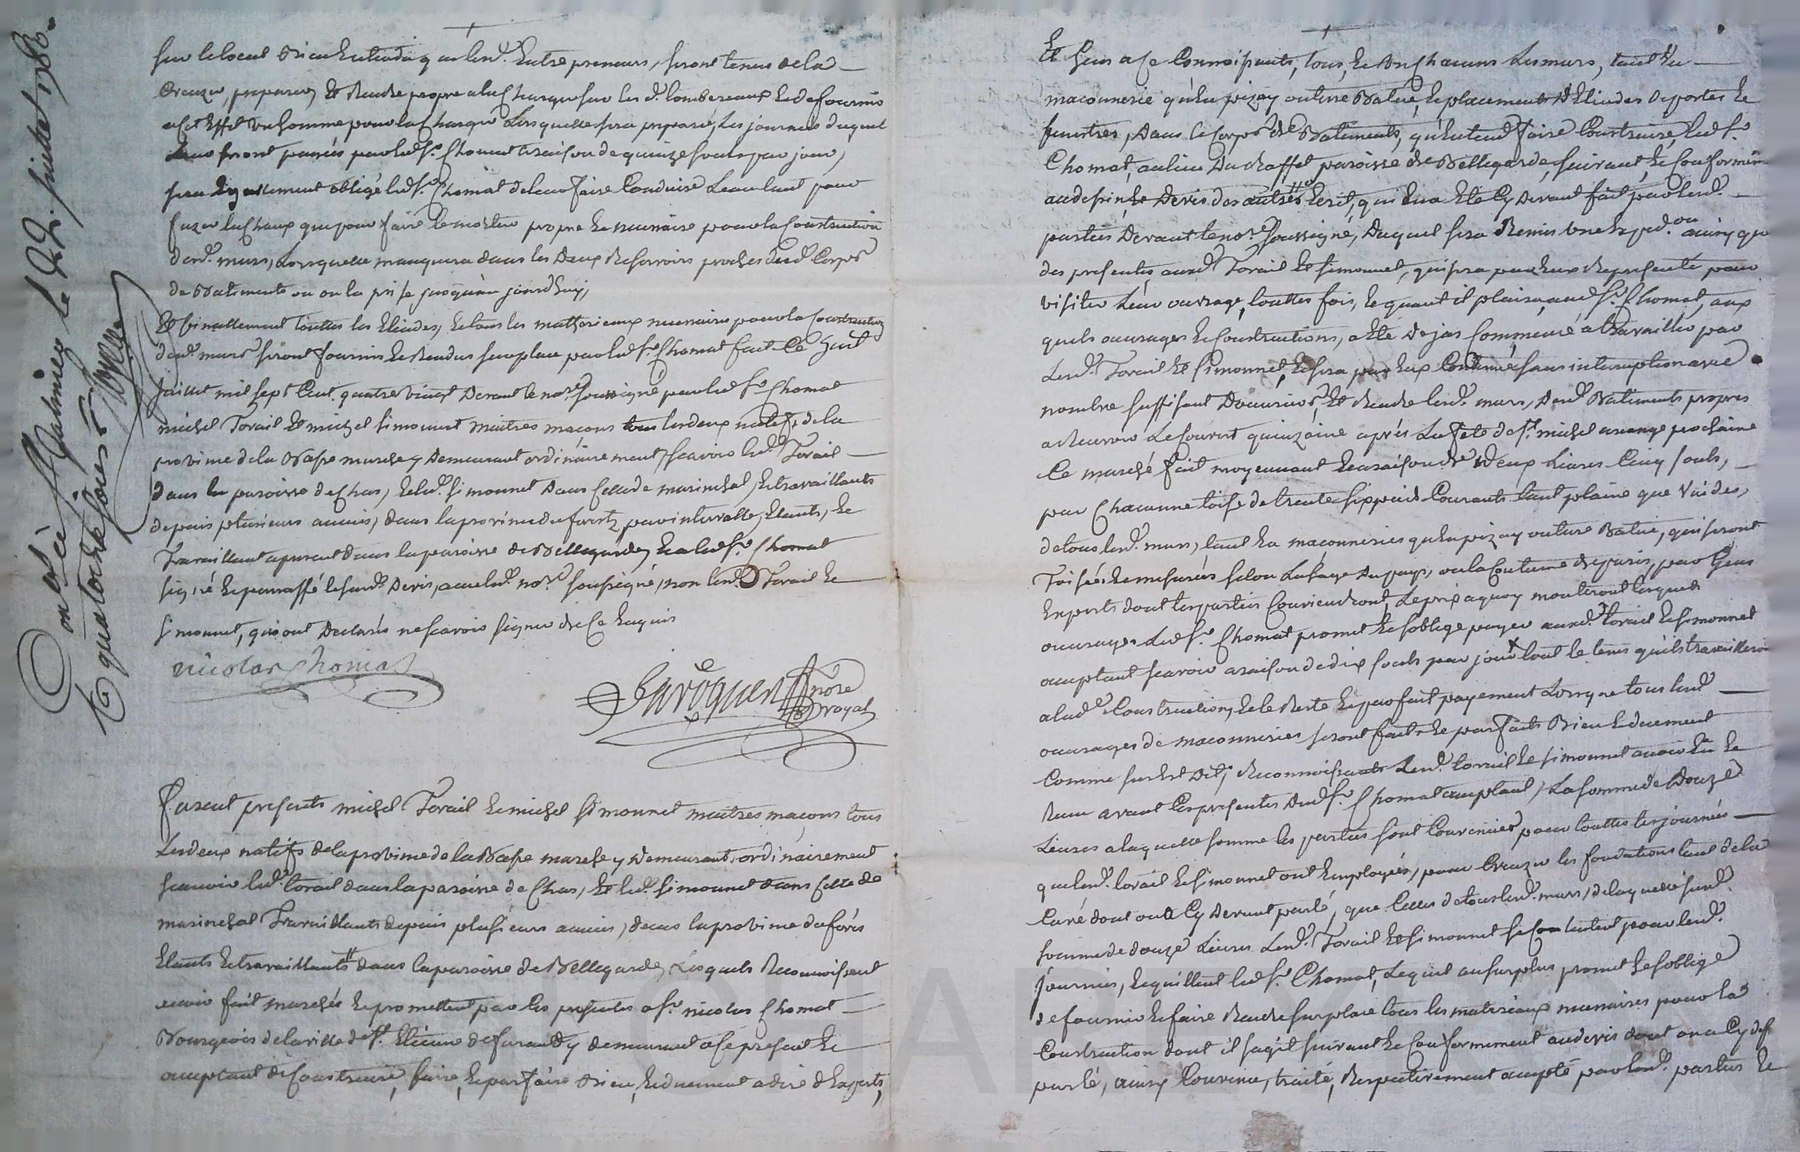 sur le local bien entendu que lesd. entrepreneurs, seront tenus de la
creuzer, preparer et rendre propre a la charge sur les d. tombereaux et de fournir
a cet effet un homme pour la charge lorsquelle sera preparé, les journées duquel
leur seront payées par led. Sr. Chomat a raison de quinze sous par jour,
sera egallement obligé led. Sr. Chomat de leur faire conduire l'eau tant pour
fuzer la chaux que pour faire le mortier propre et necessaire pour la construction
desd. murs, lorsquelle manquera dans les deux reservoirs proches dud. corps
de batiments ou on la prise jusqu'au jourd'huy,
et finallement touttes les etendes, et tous les mathereaux necessaires pour la construction
desd. murs seront fournis et rendus sur place par led. Sr. Chomat fait ce huit
juillet mil sept cent quatre vingt devant le nore. soussigné par led. Sr. Chomat
michel Torail et michel Simonnet maitres macons tous les deux natifs de la
province de la basse marche y demeurant ordinairement, scavoir led. Torail
dans la paroisse de Chas, et led. Simonnet dans celle de marinchal, et travaillants
depuis plusieurs années, dans la province du forets par intervalle, etants, et
travaillant a present dans la paroisse de Bellegarde, et a led. Sr. Chomat
signé et paraffé le susd. devis, avec led. nore. soussigné, non lesd. Torail et
Simonnet, qui ont declarés ne scavoir signer de ce enquis
nicolas Chomat
nore
royal
Furent presents michel Torail et michel Simonnet maitres maçons tous
les deux natifs de la province de la Basse marche y demeurant ordinairement
scavoir led. torail dans la paroisse de Chas, et led. Simonnet dans celle de
marinchal travaillants depuis plusieurs années, dans la province de foris
etants et travaillants dans la paroisse de Bellegarde, lesquels reconnoissent
avoir fait marchés et promettent par les presentes a Sr. nicolas Chomat
Bourgeois de la ville de St. Etienne de furand y demeurant a ce present et
acceptant de construire, faire, et parfaire bien, et duement a dire d'experts,
et gens a ce connoissants, tous, et un chacuns les murs, tant en
maconnerie qu'en pizay outure Batue, et placements d'etendes de portes et
fenetres, dans le corps de Batiments, qu'entend faire construire led. Sr.
Chomat, au lieu du Chaffet paroisse de Bellegarde, suivant, et conformement
au dessin, et devis des autres ecrit, qui en a eté cy devant fait par lesd.
parties devant le nore. soussigné, duquel sera remis une expedon. ainsy que
des presentes auxd. Torail et Simonnet, qui sera par eux representé pour
visiter leur ouvrage, touttes fois, et quant il plaira, aud. Sr. Chomat, aux
quels ouvrages et constructions, a eté dejas commencé a travailler par
lesd. Torail et Simonnet, et sera par eux continué sans interruption avec
nombre suffisant d'ouvriers, et rendre lesd. murs, desd. Batiments propres
a recevoir le couvert quinzaine après la fete de St. michel archange prochaine
ce marché fait moyennant et a raison de deux livres cinq souls,
par chacunne toise de trente six pieds courants tant plaine que vuides,
de tous lesd. murs, tant en maconneries qu'en pizay outure Batue, qui seront
toisés et mesurés selon l'usage du pays, ou la coutume de paris, par gens
experts dont les parties conviendront, le prix a quoy monteront lesquels
ouvrages led. Sr. Chomat promet et s'oblige payer auxd. torail et Simonnet
acceptant scavoir a raison de dix souls par jour tout le tems qu'ils travailleront
a lad. construction, et le reste et parfait payement lorsque tous lesd.
ouvrages de maconneries seront faits et parfaits Bien et duement
comme sus est dit, reconnoissants lesd. torail et Simonnet avoir eu et
receu avant les presentes dud. Sr. Chomat acceptant, la somme de douze
livres a laquelle somme les parties sont convenues pour touttes les journées
que lesd. torail et Simonnet ont employées, pour creuzer les fondations tant de la
cave dont on a cy devant parlé, que celles de tous lesd. murs, de laquelle susd.
somme de douze livres lesd. Torail et Simonnet se contentent pour lesd.
journées, et quittent led. Sr. Chomat, lequel au surplus promet et s'oblige
de fournir et faire rendre sur place tous les materiaux necessaires pour la
construction dont il s'agit suivant et conformement au devis dont on a cy dest.
parlé, ainsy convenu, traité, respectivement accepté par lesd. parties et